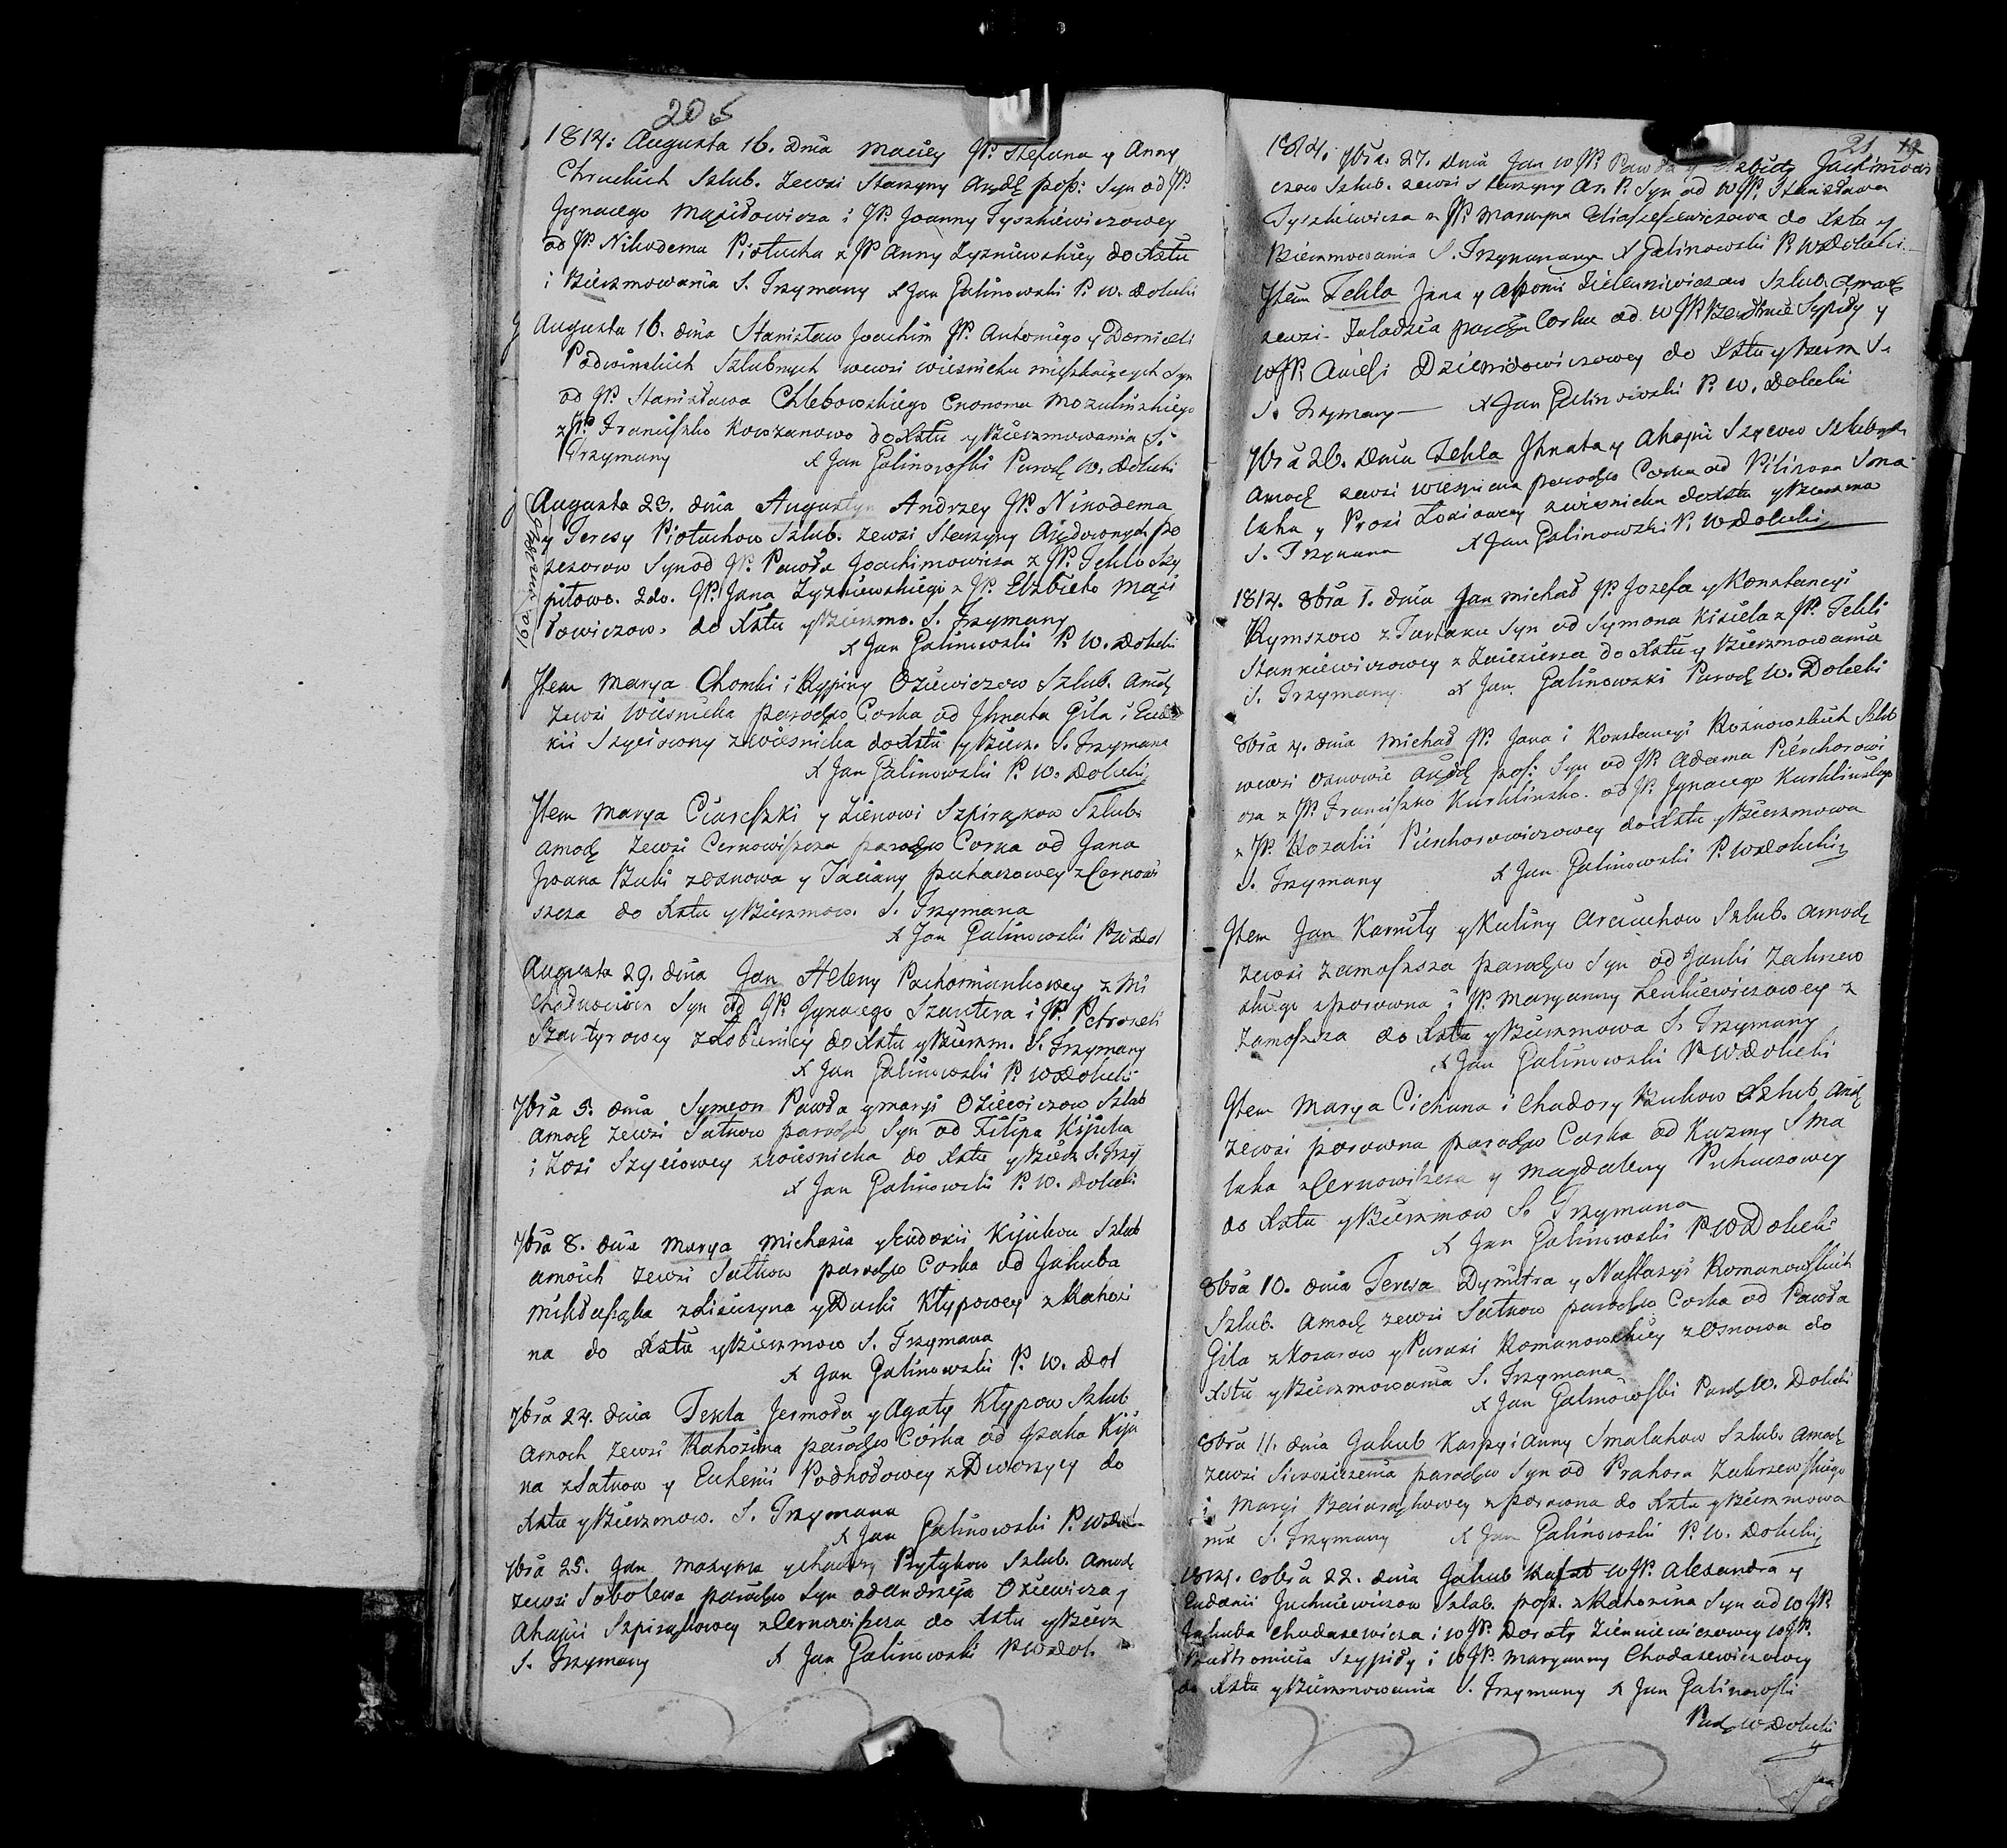 20
1814: Augusta 16. dnia Maciey JP. Stefana y Anny
Chruckich Szlub. Zewsi Starzyny Arędę poss: Syn od JP.
Jgnacego i JP. Joanny Tyszkiewiczowey
od JP. Nikodema Piotucha z JP Anny Zyzniewskiey do Xstu
i Bierzmowania S. Trzymany X Jan Galinowski P. W. Dolucki
Augusta 16. dnia Stanisław Joachim JP. Antoniego y Danieli
Podwinskich Szlubnych wewsi wiesnicku mieszkaiących Syn
od JP. Stanisława Chlebowskiego Enonoma
z JP. Franciszko do Xstu y Bierzmowania S.
Trzymany X Jan Galinowski Paroch W. Dolucki
Augusta 23. dnia Augustyn Andrzey JP. Ninodema
y Teresy Piotuchow Szlub. zewsi Starzyny Arędownych po
sesorow Syn od JP. Pawła Joachimowicza z JP. Teklo Szy
pitowo. 2do. JP. Jana Zyzniewskiego z JP. Elzbieto
łowiczow. do Xstu y Bierzmo. S. Trzymany
X Jan Galinowski P. W. Dolucki
Jtem Marya Chomki i Oziewiczow Szlub. amoch
Zewsi Wiesnicka parochw Corka od Jhnata Gila i
kii Szyciowny zwiesnicka do Xstu y Bierz. S. Trzymana
X Jan Galinowski P. W. Dolucki
Jtem Marya y Zienowi Szpirąkow Szlub.
amoch Zewsi Cernowiszcza parochw Corka od Jana
Jwana Buki zosnowa y Taciany Puhaczowey z Cernowi
szcza do Xstu y Bierzmow. S. Trzymana
X Jan Galinowski P W Dol
Augusta 29. dnia Jan Heleny z Mi
Syn od JP. Jgnacego Szantera i JP. Petroneli
Szantyrowey do Xstu y Bierzm. S. Trzymany
X Jan Galinowski P. W Dolucki
7bra 5. dnia Symeon Pawła y maryi Oziewiczow Szlub
amoch Zewsi Sutkow parochw Syn od Filipa Kijuka
i Zosi Szyciowey zwiesnicka do Xstu y Bierz. S. Trzy
X Jan Galinowski P. W. Dolucki
7bra 8. dnia Marya Michasia y Eudokii Kijukow Szlub
amoich Zewsi Sutkow parochw Corka od Jakuba
zLisiczyna y Duski Kłypowey z Rahozi
na do Xstu y Bierzmow S. Trzymana
X Jan Galinowski P. W. Dol
7bra 24. dnia Tekla Jermoła y Agaty Kłypow Szlub
amoch Zewsi Rahozina parochw Corka od Jsaka Kiju
na zSutkow y Euhenii Podhodowey z Dworzycy do
Xstu y Bierzmow. S. Trzymana
X Jan Galinowski P. W Dol
7bra 25. Jan Maxyma y Prytykow Szlub. amoch
Zewsi Sobolewa parochw Syn od Andrzeja Oziewicza y
Ahapii Szpirąkowey z Cernowiszcza do Xstu y Bierz
S. Trzymany X Jan Galinowski P W Dol.
21
1814. 7bra. 27. dnia Jan w JP. Pawła y Jachimowi
czow Szlub. zewsi Starzyny Ar. P. Syn od W JP. Stanisława
Tyszkiewicza z JP. do Xstu y
Bierzmowania S. Trzymany X Galinowski P. W Dolucki
Jtem Tekla Jana y Szlub. amoch
zewsi paroch Corka od W JP
W JP. Anieli Dziemidowiczowey do Xstu y Bierzm S.
S. Trzymany X Jan Galinowski P. W. Dolucki
7bra 26. dnia Tekla Jhnata y Ahapii Szycow Szlubnych
amoch zewsi wiesnicka parochw Corka od Sma
luka y Prosi zwiesnicka do Xstu y Bierzmo
S. Trzymana X Jan Galinowski P. W Dolucki
1814. 8bra 1. dnia Jan michał JP. Jozefa y Konstancyi
Rymszow z Tartaku Syn od Symona Kisiela z JP. Tekli
Stankiewiczowey z do Xstu y Bierzmowania
S. Trzymany. X Jan Galinowski Paroch W. Dolucki
8bra 4. dnia Michał JP. Jana i Konstancyi Koznowskich Szlub
wewsi osnowie Arędę pos: Syn od JP. Adama Piechorowi
cza z JP. Franciszko Kuklinsko. od JP. Jgnacego Kuklinskego
z JP. Rozalii Piechorowiczowey do Xstu y Bierzmowa
S. Trzymany X Jan Galinowski P. W Dolucki
Jtem Jan Karniły y Kuliny Arciuchow Szlub. amoch
zewsi Zamoszcza parochw Syn od Janki Zakrzew
skiego zPorowna i JP. Maryanny Lenkiewiczowey z
Zamoszcza do Xstu y Bierzmowa S. Trzymany
X Jan Galinowski P W Dolucki
Jtem Marya Cichana i Chadory Bukow Szlub Amoch
zewsi porowna parochw Corka od Kuzmy Sma
luka z Cernowiszcza y Magdaleny Puhaczowey
do Xstu y Bierzmow S. Trzymana
X Jan Galinowski P W Dolucki
8bra 10. dnia Teresa Dymitra y Nastazyi Romanowskich
Szlub. Amoch zewsi Sutkow parochw Corka od Pawła
Gila zKosarow y Parasi Romanowskiey zOsnowa do
Xstu y Bierzmowania S. Trzymana
X Jan Galinowski Paroch W. Dolucki
8bra 11. dnia Jakub Karpy i Anny Smalukow Szlub. amoch
zewsi parochw Syn od Prahora Zakrzewskiego
i Maryi zporowna do Xstu y Bierzmowa
nia S. Trzymany X Jan Galinowski P. W. Dolucki
1814. 8bra 22. dnia Jakub Rafał W JP. Alesandra y
Eudoxii Juchniewiczow Szlub. poss. z Rahozina Syn od W JP.
Jakuba Chodasewicza i W JP. Doroty Zienniewiczowey W JP.
Szypiły i W JP. Maryanny Chodasewiczowey
do Xstu y Bierzmowania S. Trzymany X Jan Galinowski
Par W Dolucki